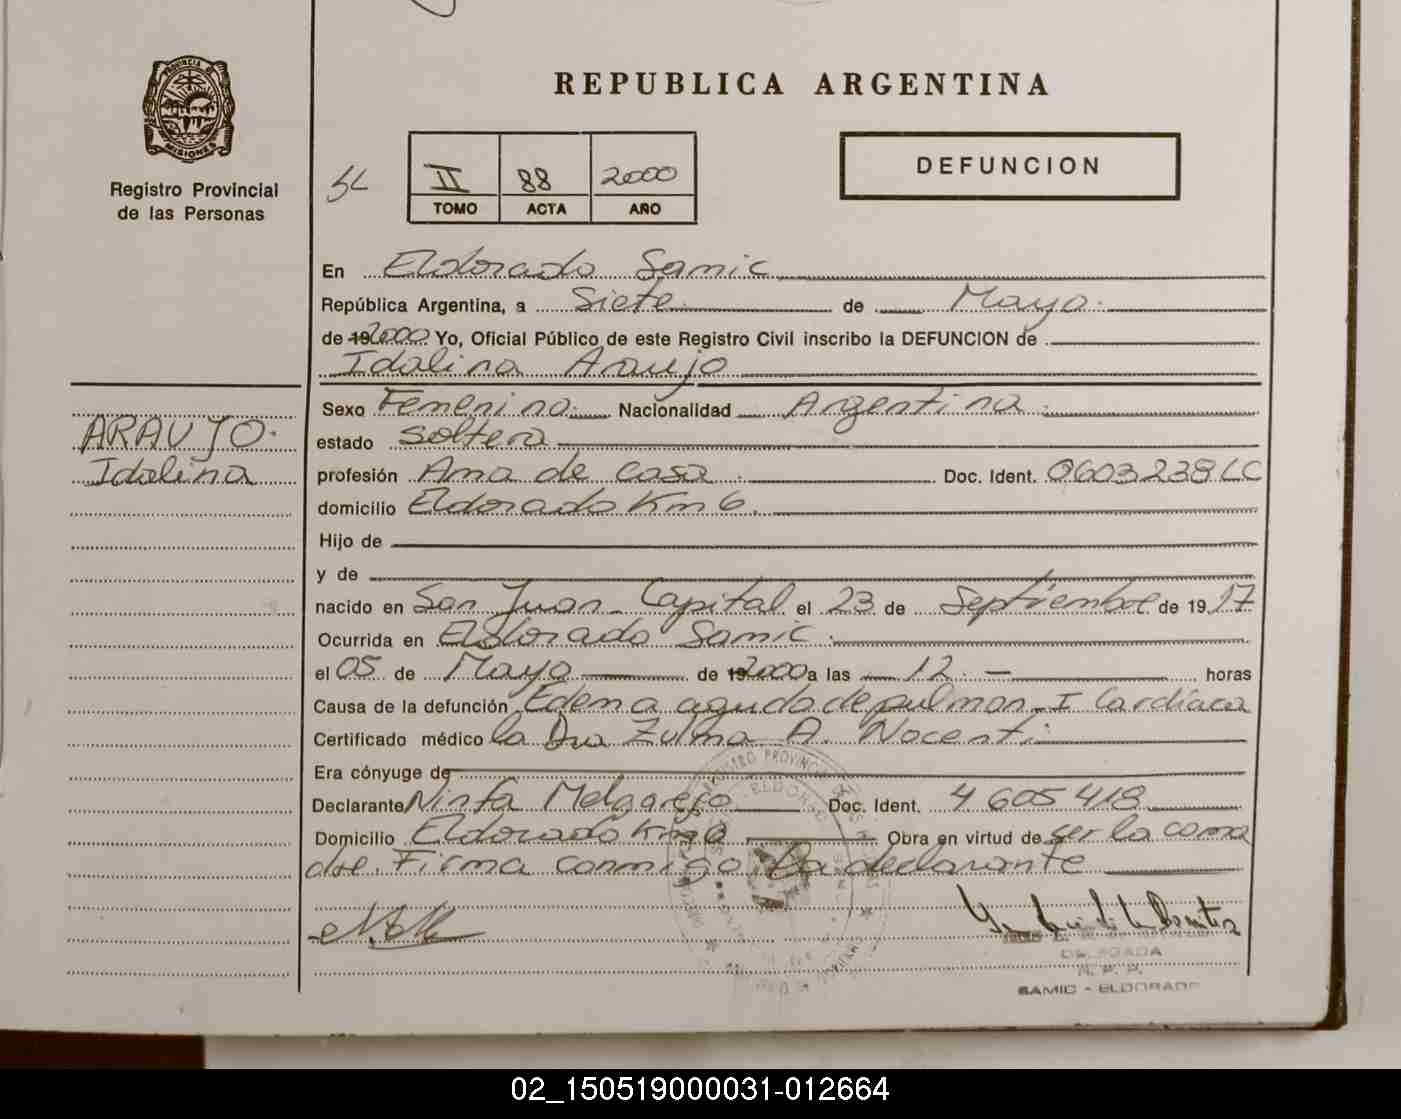 REPUBLICA ARGENTINA
PROVINCIA DE
MISIONES
Registro Provincial
de las Personas
II 88 2000
TOMO ACTA AÑO
DEFUNCION
En Eldorado Samic
República Argentina, a Siete de Mayo.
de 19 2000 Yo, Oficial Público de este Registro Civil inscribo la DEFUNCION de
Idalina Araujo
ARAUJO.
Idalina
Sexo Femenino. Nacionalidad Argentina
estado soltera
profesión Ama de casa Doc. Ident. 0603238 LC
domicilio Eldorado Km 6.
Hijo de
y de
nacido en San Juan - Capital el 23 de Septiembre de 19 17
Ocurrida en Eldorado Samic.
el 05 de Mayo de 19 2000 a las 12 - horas
Causa de la defunción Edema agudo de pulmon - I Cardíaca
Certificado médico la Dra Zulma A. Nocenti
Era cónyuge de
Declarante Ninfa Melgarejo Doc. Ident. 4 605 418
Domicilio Eldorado Km 6 Obra en virtud de ser la coma
dre. Firma conmigo la declarante
DELEGADA
R. P. P.
SAMIC - ELDORADO
02_150519000031-012664